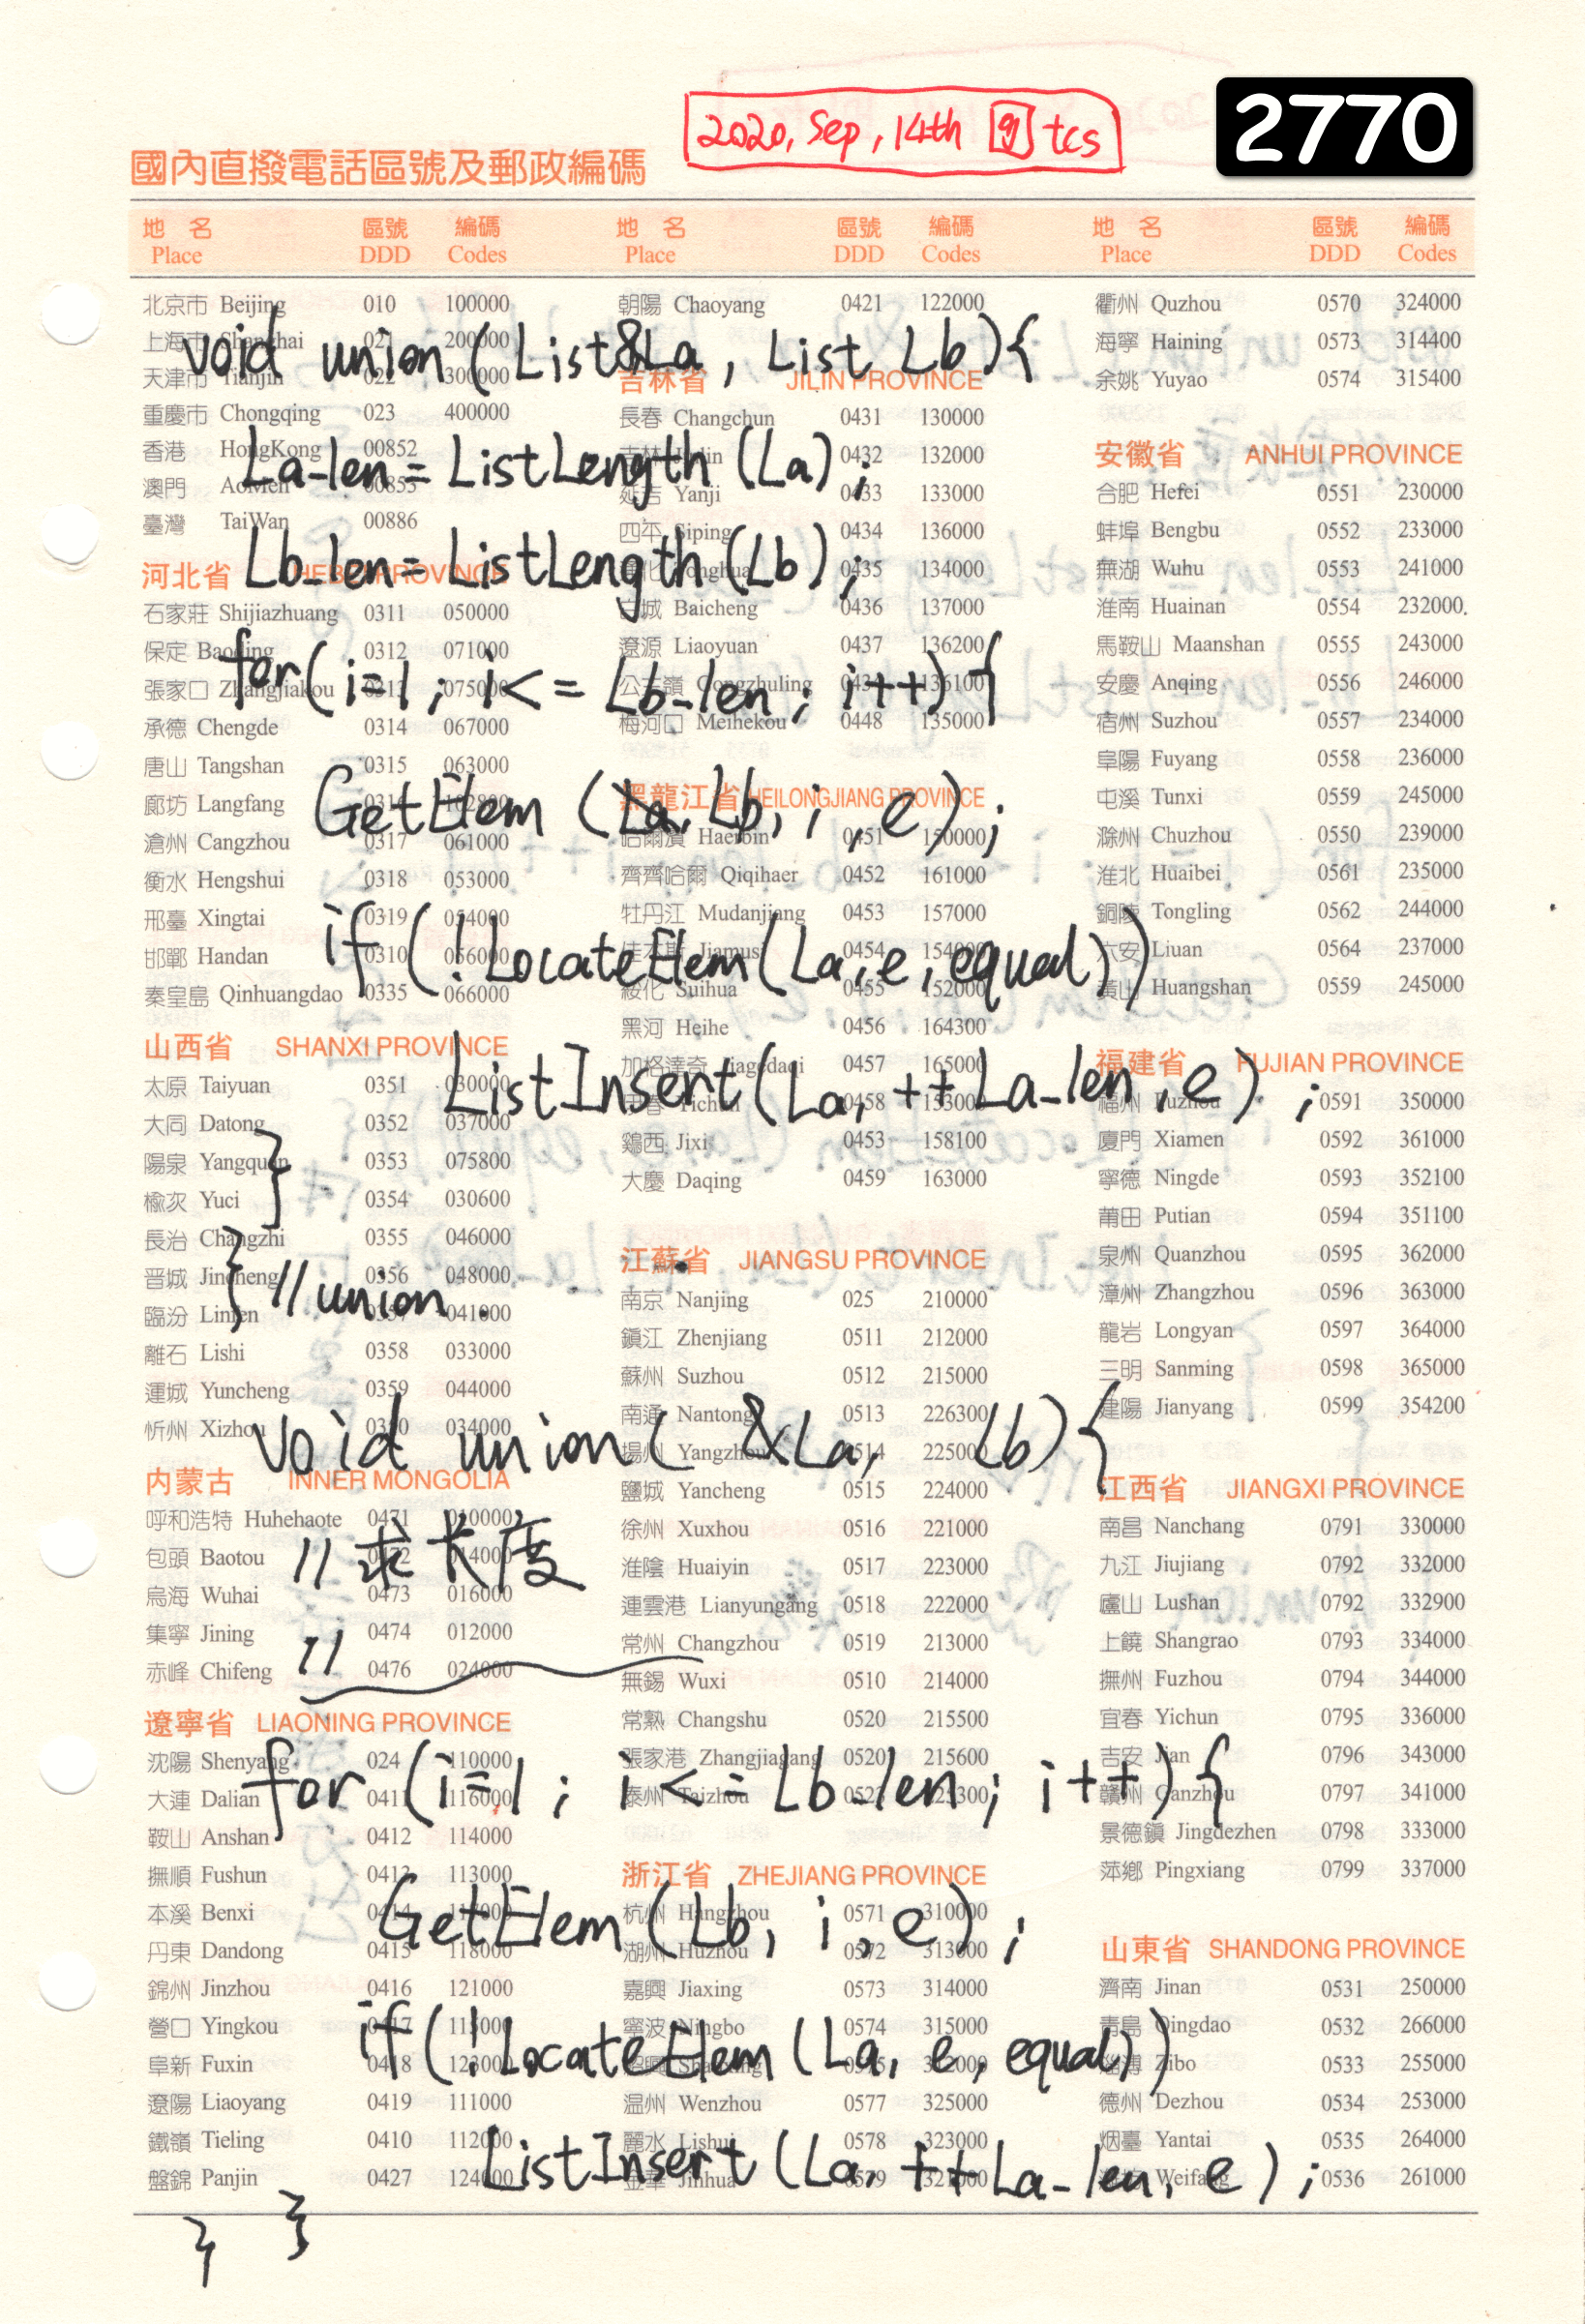 2020, Sep, 14th 回 tcs
2770
國內直撥電話區號及郵政編碼
地 名 區號 編碼 地 名 區號 編碼 地 名 區號 編碼
Place DDD Codes Place DDD Codes Place DDD Codes
void union (List &La, List Lb){
La_len = ListLength (La);
Lb_len = ListLength (Lb);
for(i=1; i<= Lb_len; i++){
GetElem (Lb, i, e);
if (!LocateElem(La, e, equal))
ListInsert(La, ++La_len, e);
}
} //union.
void union( &La, Lb){
//求长度
//
for (i=1; i<=Lb_len; i++){
GetElem (Lb, i, e);
if(!LocateElem (La, e, equal))
ListInsert (La, ++La_len, e);
}
}
北京市 Beijing 010 100000
上海市 Shanghai 021 200000
天津市 Tianjin 022 300000
重慶市 Chongqing 023 400000
香港 HongKong 00852
澳門 AoMen 00853
臺灣 TaiWan 00886
河北省 HEBEI PROVINCE
石家莊 Shijiazhuang 0311 050000
保定 Baoding 0312 071000
張家口 Zhangjiakou 0313 075000
承德 Chengde 0314 067000
唐山 Tangshan 0315 063000
廊坊 Langfang
滄州 Cangzhou 0317 061000
衡水 Hengshui 0318 053000
邢臺 Xingtai 0319 054000
邯鄲 Handan 0310 056000
秦皇島 Qinhuangdao 0335 066000
山西省 SHANXI PROVINCE
太原 Taiyuan 0351 030000
大同 Datong 0352 037000
陽泉 Yangquan 0353 075800
榆次 Yuci 0354 030600
長治 Changzhi 0355 046000
晋城 Jincheng 0356 048000
臨汾 Linfen 0357 041000
離石 Lishi 0358 033000
運城 Yuncheng 0359 044000
忻州 Xizhou 034000
內蒙古 INNER MONGOLIA
呼和浩特 Huhehaote 0471 010000
包頭 Baotou 0472 014000
烏海 Wuhai 0473 016000
集寧 Jining 0474 012000
赤峰 Chifeng 0476 024000
遼寧省 LIAONING PROVINCE
沈陽 Shenyang 024 110000
大連 Dalian 0411 116000
鞍山 Anshan 0412 114000
撫順 Fushun 0413 113000
本溪 Benxi 0414 117000
丹東 Dandong 0415 118000
錦州 Jinzhou 0416 121000
營口 Yingkou 0417 115000
阜新 Fuxin 0418 123000
遼陽 Liaoyang 0419 111000
鐵嶺 Tieling 0410 112000
盤錦 Panjin 0427 124000
朝陽 Chaoyang 0421 122000
吉林省 JILIN PROVINCE
長春 Changchun 0431 130000
吉林 Jilin 0432 132000
延吉 Yanji 0433 133000
四平 Siping 0434 136000
通化 Tonghua 0435 134000
白城 Baicheng 0436 137000
遼源 Liaoyuan 0437 136200
公主嶺 Gongzhuling 136100
梅河口 Meihekou 0448 135000
黑龍江省 HEILONGJIANG PROVINCE
哈爾濱 Haerbin 0451 150000
齊齊哈爾 Qiqihaer 0452 161000
牡丹江 Mudanjiang 0453 157000
佳木斯 Jiamusi 0454 154000
綏化 Suihua 0455 152000
黑河 Heihe 0456 164300
加格達奇 Jiagedaqi 0457 165000
伊春 Yichun 0458 153000
鷄西 Jixi 0453 158100
大慶 Daqing 0459 163000
江蘇省 JIANGSU PROVINCE
南京 Nanjing 025 210000
鎮江 Zhenjiang 0511 212000
蘇州 Suzhou 0512 215000
南通 Nantong 0513 226300
揚州 Yangzhou 0514 225000
鹽城 Yancheng 0515 224000
徐州 Xuxhou 0516 221000
淮陰 Huaiyin 0517 223000
連雲港 Lianyungang 0518 222000
常州 Changzhou 0519 213000
無錫 Wuxi 0510 214000
常熟 Changshu 0520 215500
張家港 Zhangjiagang 0520 215600
泰州 Taizhou 225300
浙江省 ZHEJIANG PROVINCE
杭州 Hangzhou 0571 310000
湖州 Huzhou 0572 313000
嘉興 Jiaxing 0573 314000
寧波 Ningbo 0574 315000
紹興 Shaoxing 0575 312000
温州 Wenzhou 0577 325000
麗水 Lishui 0578 323000
金華 Jinhua 0579 321000
衢州 Quzhou 0570 324000
海寧 Haining 0573 314400
余姚 Yuyao 0574 315400
安徽省 ANHUI PROVINCE
合肥 Hefei 0551 230000
蚌埠 Bengbu 0552 233000
蕪湖 Wuhu 0553 241000
淮南 Huainan 0554 232000
馬鞍山 Maanshan 0555 243000
安慶 Anqing 0556 246000
宿州 Suzhou 0557 234000
阜陽 Fuyang 0558 236000
屯溪 Tunxi 0559 245000
滁州 Chuzhou 0550 239000
淮北 Huaibei 0561 235000
銅陵 Tongling 0562 244000
六安 Liuan 0564 237000
黃山 Huangshan 0559 245000
福建省 FUJIAN PROVINCE
福州 Fuzhou 0591 350000
廈門 Xiamen 0592 361000
寧德 Ningde 0593 352100
莆田 Putian 0594 351100
泉州 Quanzhou 0595 362000
漳州 Zhangzhou 0596 363000
龍岩 Longyan 0597 364000
三明 Sanming 0598 365000
建陽 Jianyang 0599 354200
江西省 JIANGXI PROVINCE
南昌 Nanchang 0791 330000
九江 Jiujiang 0792 332000
廬山 Lushan 0792 332900
上饒 Shangrao 0793 334000
撫州 Fuzhou 0794 344000
宜春 Yichun 0795 336000
吉安 Jian 0796 343000
贛州 Ganzhou 0797 341000
景德鎮 Jingdezhen 0798 333000
萍鄉 Pingxiang 0799 337000
山東省 SHANDONG PROVINCE
濟南 Jinan 0531 250000
青島 Qingdao 0532 266000
淄博 Zibo 0533 255000
德州 Dezhou 0534 253000
烟臺 Yantai 0535 264000
Weifang 0536 261000